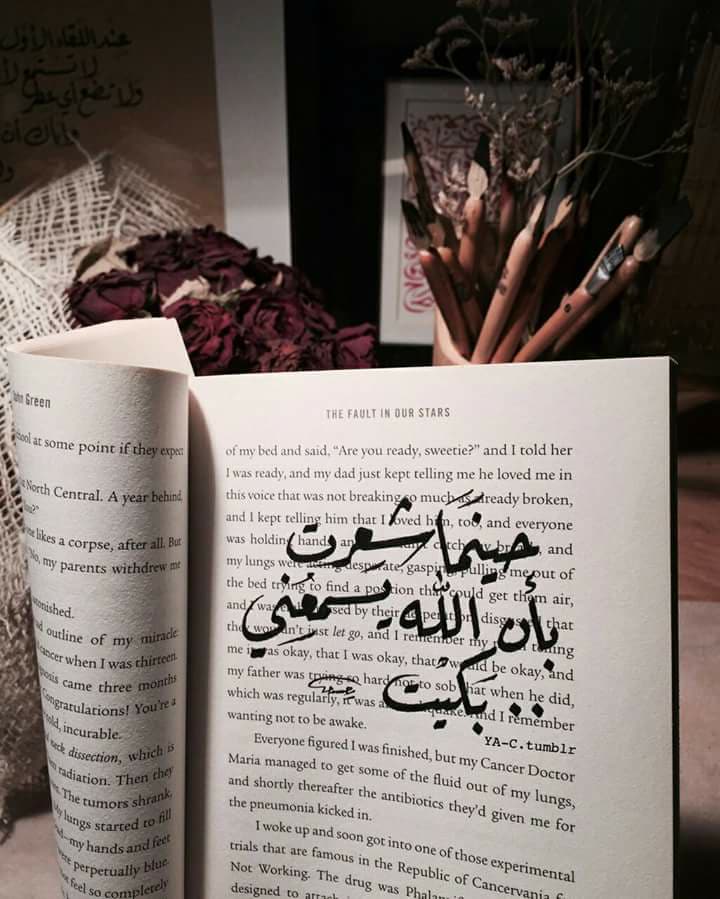 عند اللقاء الأول
لا تستمع لأ
ولا تضع أي عطر
وإياك أن
John Green
school at some point if they expect
North Central. A year behind,
likes a corpse, after all. But
"No, my parents withdrew me
astonished.
outline of my miracle:
cancer when I was thirteen.
came three months
Congratulations! You're a
told, incurable.
neck dissection, which is
radiation. Then they
The tumors shrank,
My lungs started to fill
my hands and feet
were perpetually blue.
feel so completely
THE FAULT IN OUR STARS
of my bed and said, "Are you ready, sweetie?" and I told her
I was ready, and my dad just kept telling me he loved me in
this voice that was not breaking so much as already broken,
and I kept telling him that I loved him, too, and everyone
was holding hands, and catch my breath, and
my lungs were acting desperate, gasping, pulling me out of
the bed trying to find a position that could get them air,
and I was by their desperation, disgusted that
they wouldn't just let go, and I remember my telling
me it was okay, that I was okay, that would be okay, and
my father was trying so hard not to sob that when he did,
which was regularly, it was an earthquake. And I remember
wanting not to be awake.
Everyone figured I was finished, but my Cancer Doctor
Maria managed to get some of the fluid out of my lungs,
and shortly thereafter the antibiotics they'd given me for
the pneumonia kicked in.
I woke up and soon got into one of those experimental
trials that are famous in the Republic of Cancervania for
Not Working. The drug was
designed to attach
حينما شعرت
بأن الله يسمعني
.. بكيت
YA-C.tumblr